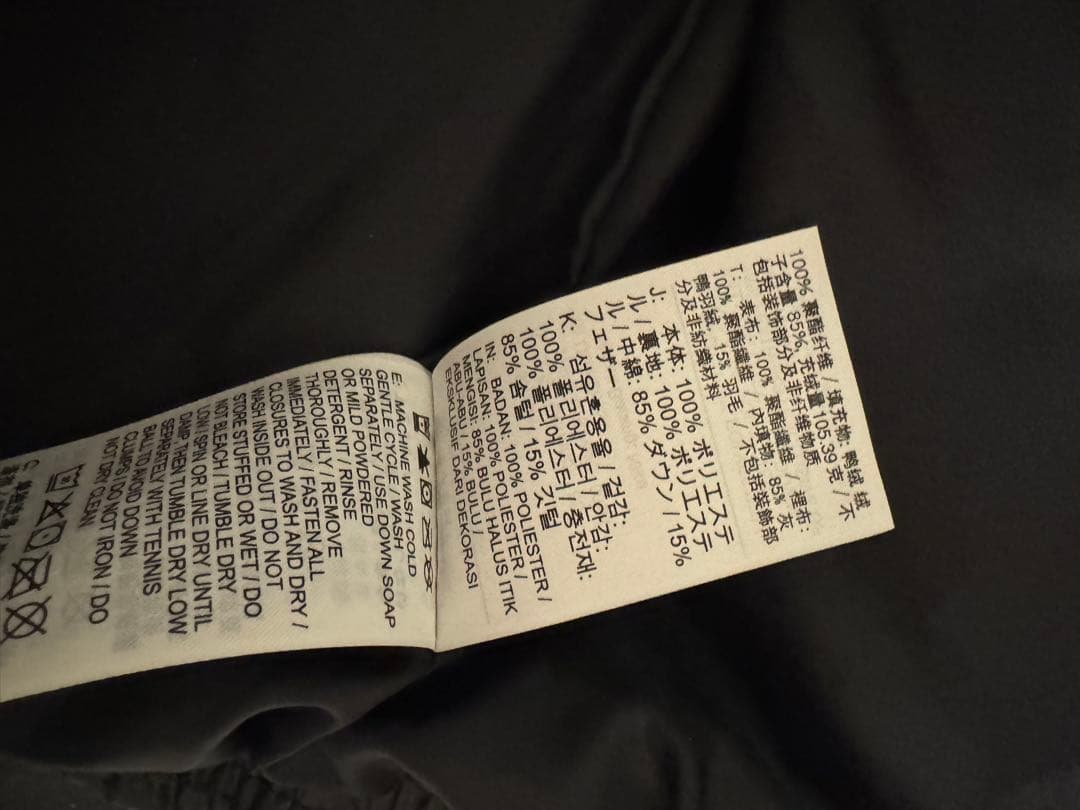 100% 聚酯纤维 / 填充物: 鸭绒 绒
子含量 85%, 充绒量105.39 克 / 不
包括装饰部分及非纤维物质
T: 表布: 100% 聚酯纖維 / 裡布:
100% 聚酯纖維 / 內填物: 85% 灰
鴨羽絨, 15% 羽毛 / 不包括裝飾部
分及非紡織材料
J: 本体: 100% ポリエステ
ル / 裏地: 100% ポリエステ
ル / 中綿: 85% ダウン / 15%
フェザー
K: 섬유혼용율 / 겉감:
100% 폴리에스터 / 안감:
100% 폴리에스터 / 충전재:
85% 솜털 / 15% 깃털
IN: BADAN: 100% POLIESTER /
LAPISAN: 100% POLIESTER /
MENGISI: 85% BULU HALUS ITIK
ABU-ABU / 15% BULU /
EKSKLUSIF DARI DEKORASI
E: MACHINE WASH COLD
GENTLE CYCLE / WASH
SEPARATELY / USE DOWN SOAP
OR MILD POWDERED
DETERGENT / RINSE
THOROUGHLY / REMOVE
IMMEDIATELY / FASTEN ALL
CLOSURES TO WASH AND DRY /
WASH INSIDE OUT / DO NOT
STORE STUFFED OR WET / DO
NOT BLEACH / TUMBLE DRY
LOW / SPIN OR LINE DRY UNTIL
DAMP THEN TUMBLE DRY LOW
SEPARATELY WITH TENNIS
BALL TO AVOID DOWN
CLUMPS / DO NOT IRON / DO
NOT DRY CLEAN
C: